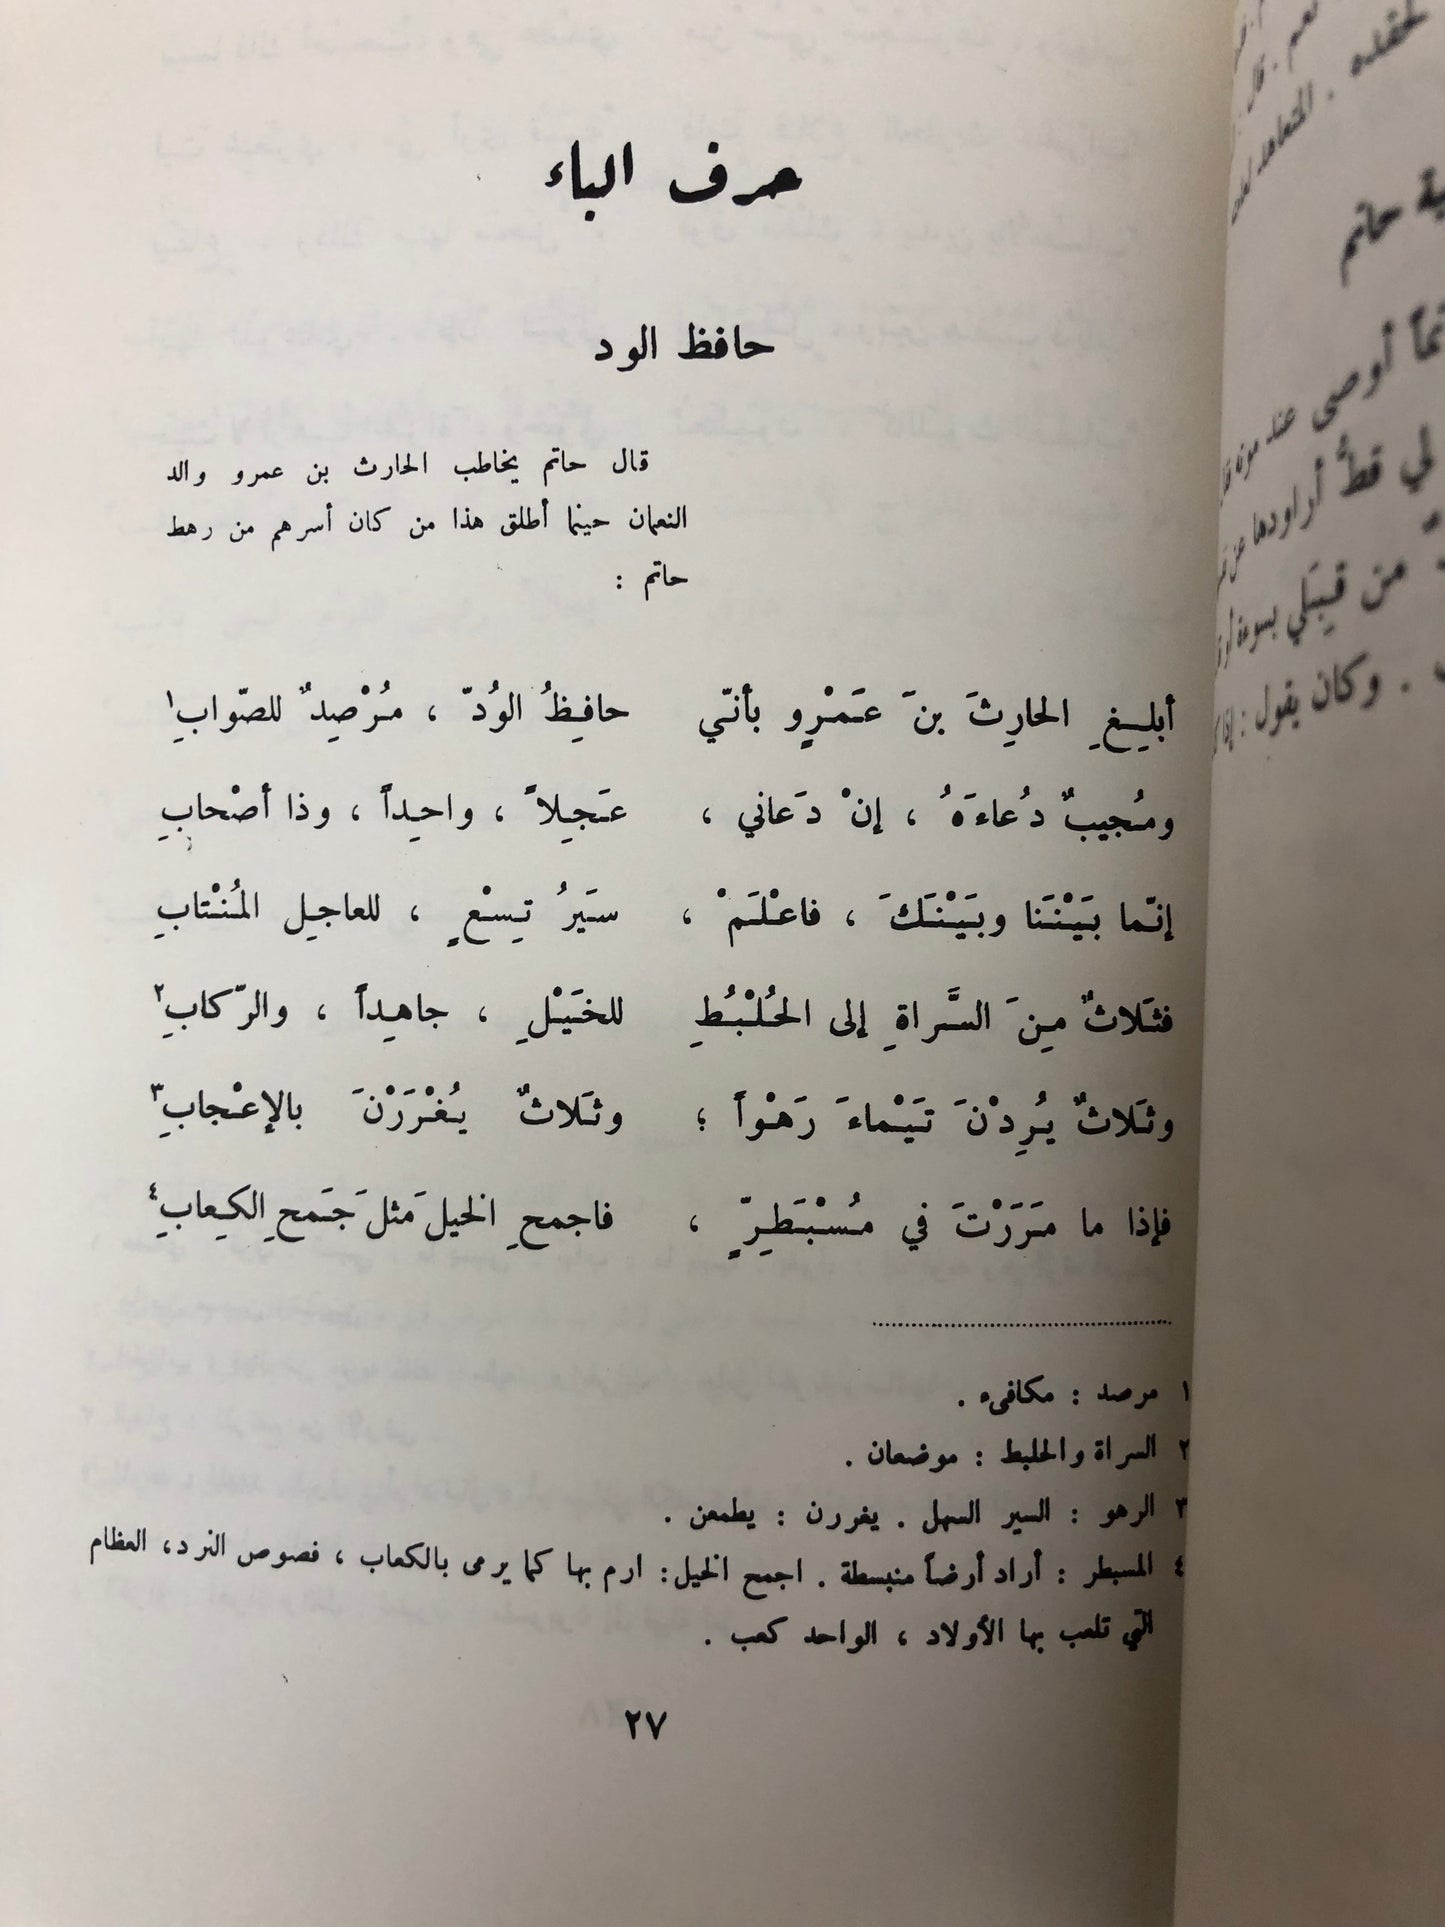 حرف الباء
حافظ الود
قال حاتم يخاطب الحارث بن عمرو والد
النعمان حينما أطلق هذا من كان أسرهم من رهط
حاتم :
أبلِـغِ الحارِثَ بنَ عَمْرٍو بأنّي حافِظُ الوُدّ ، مُرْصِدٌ للصّوابِ١
ومُجيبٌ دُعاءَهُ ، إنْ دَعاني ، عَجِلاً ، واحِداً ، وذا أصْحابِ
إنّما بَيْنَنا وبَيْنَكَ ، فاعْلَمْ ، سَيرُ تِسْعٍ ، للعاجِلِ المُنْتابِ
فثَلاثٌ مِنَ السَّراةِ إلى الحُلْبُطِ للخَيْلِ ، جاهِداً ، والرّكابِ٢
وثَلاثٌ يُرِدْنَ تَيْماءَ رَهْواً ؛ وثَلاثٌ يُغْرَرْنَ بالإعْجابِ٣
فإذا ما مَرَرْتَ في مُسْبَطِرٍّ ، فاجمحِ الخيلَ مثلَ جَمحِ الكِعابِ٤
١ مرصد : مكافىء .
٢ السراة والحلبط : موضعان .
٣ الرهو : السير السهل . يغررن : يطمعن .
٤ المسبطر : أراد أرضاً منبسطة . اجمح الخيل : ارم بها كما يرمى بالكعاب ، فصوص النرد، العظام
التي تلعب بها الأولاد ، الواحد كعب .
٢٧
لحقده
المتعاهد
قال
ية حاتم
أوصى عند موته
لي قطُّ أراودها عن
من قِبَلي بسوءة أو
. وكان يقول : إذا